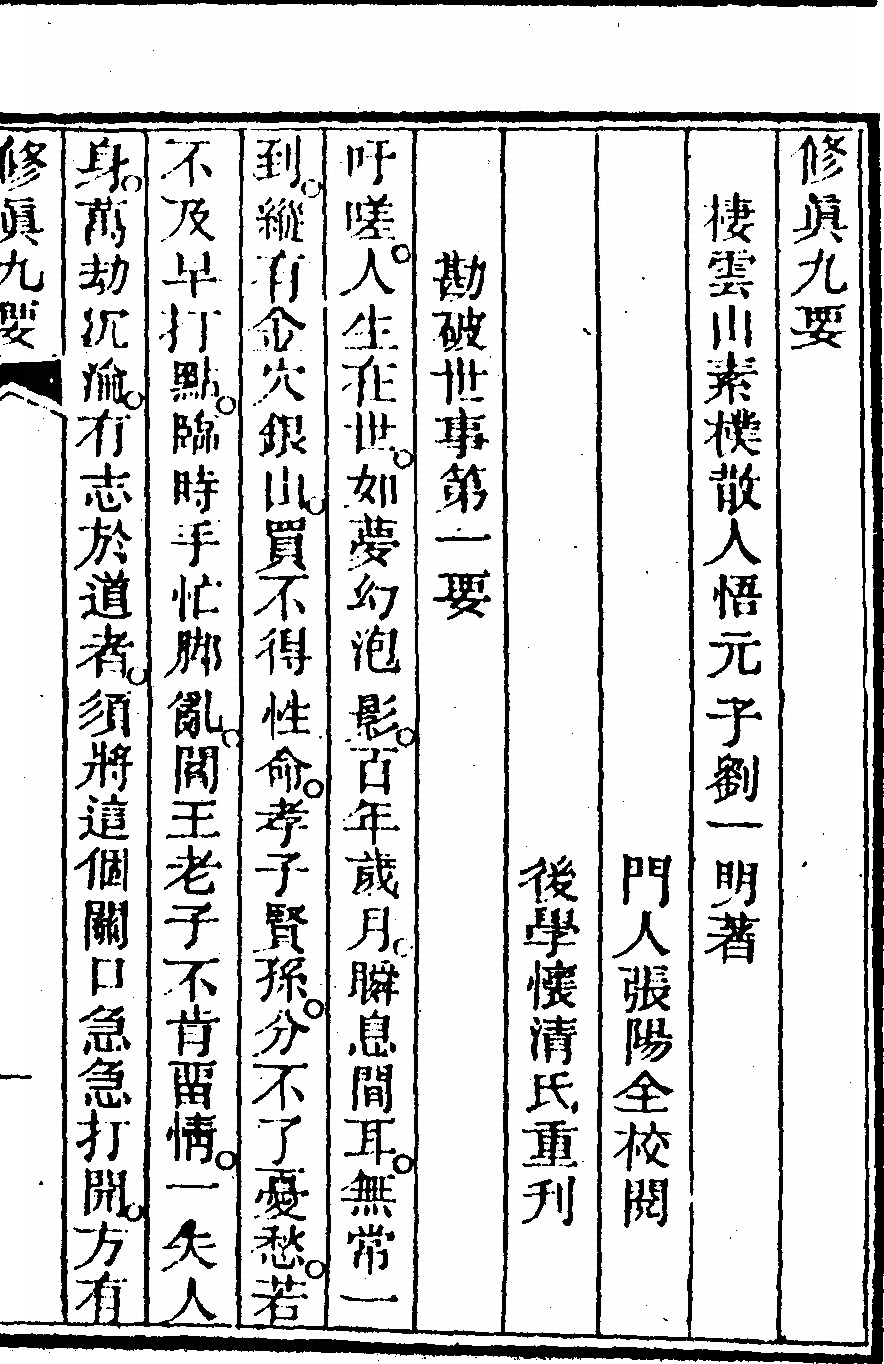 修眞九要
棲雲山素樸散人悟元子劉一明著
門人張陽全校閱
後學懷清氏重刊
勘破世事第一要
吁嗟。人生在世。如夢幻泡影。百年歲月。瞬息間耳。無常一
到。縱有金穴銀山。買不得性命。孝子賢孫。分不了憂愁。若
不及早打點。臨時手忙腳亂。閻王老子不肯畱情。一失人
身。萬劫沉淪。有志於道者。須將這個關口急急打開。方有
修眞九要
一